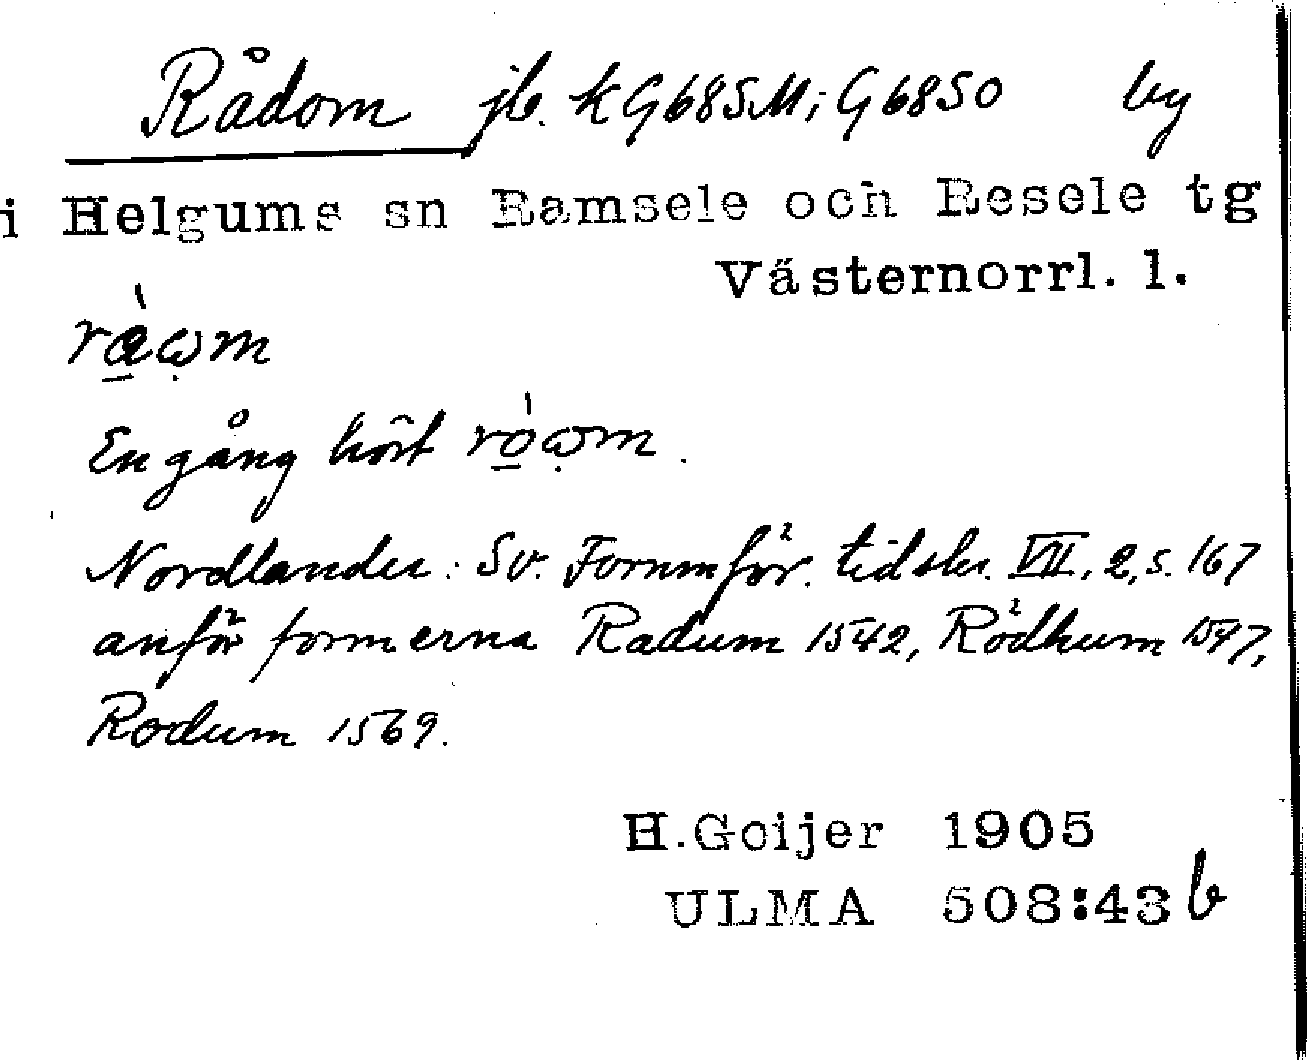 Rådom jb. K G685M; G6850 by
i Helgums sn Ramsele och Resele tg
Västernorrl. l.
En gång hört
Nordlander: Sv. Fornmför. tidskr. VII, 2, s. 167
anför formerna Radum 1542, Rödhum 1547,
Rodum 1569.
H.Goijer 1905
ULMA 508:43 b